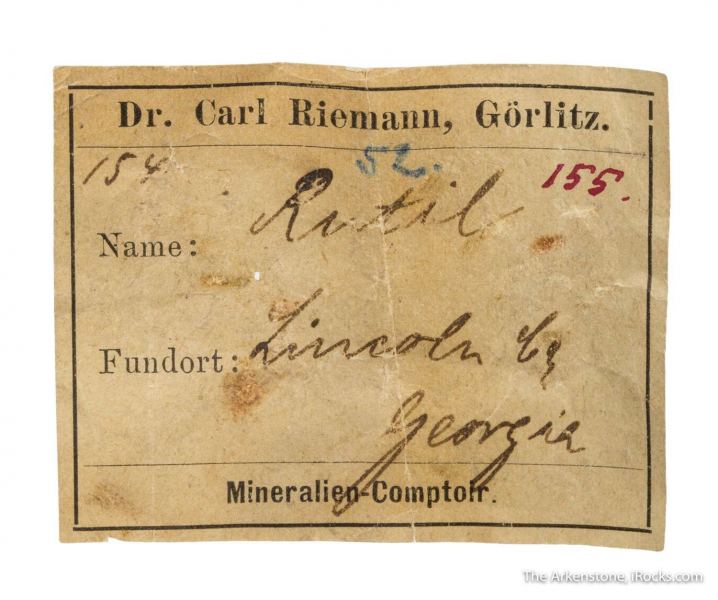 Dr. Carl Riemann, Görlitz.
154 52. 155.
Name: Rutil
Fundort: Lincoln Co
Georgia
Mineralien-Comptoir.
The Arkenstone, iRocks.com